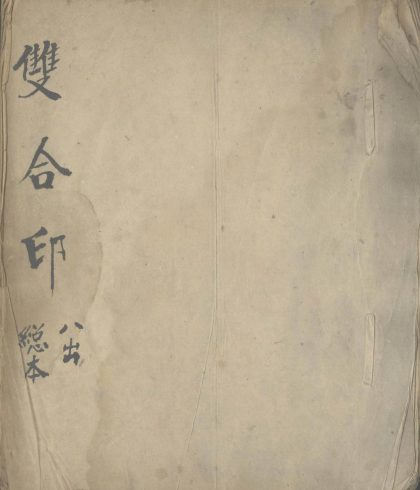 雙合印
八出
総本